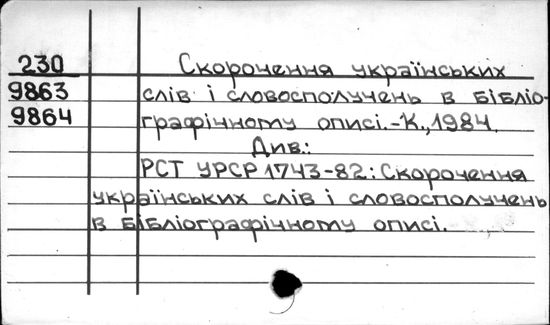 230 Скорочення українських
9863 слів і словосполучень в бібліо-
9864 графічному описі.-К.,1984.
Див.:
РСТ УРСР 1743-82: Скорочення
українських слів і словосполучень
в бібліографічному описі.